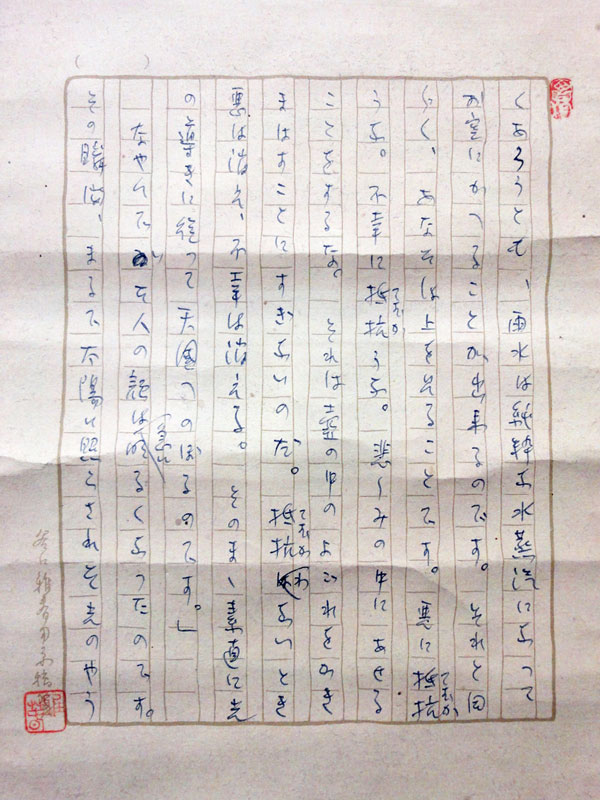 くあろうとも、雨水は純粋な水蒸汽になって
お空にかへることが出来るのです。それと同
らく、あなたは上を見ることです。悪に抵抗
てむか
うな。不幸に抵抗うな。悲しみの中にあせる
てむか
ことをするな。それは壷の中のよごれをかき
まはすことにすぎないのだ。抵抗はないとき
てむか
わ
悪は消え、不幸は消える。そのまゝ素直に光
の導きに従って天国へのぼるのです。」
なやんでゐた人の顔は明るくなったのです。
その瞬間、まるで太陽に照らされた光のやう
谷口雅春